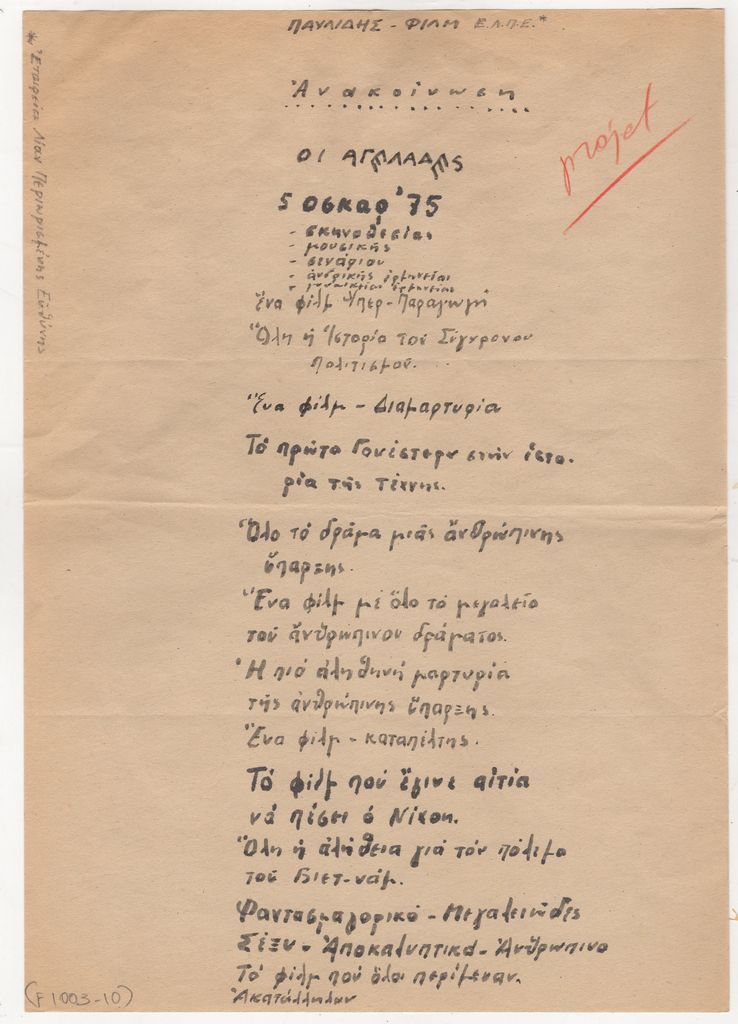 ΠΑΥΛΙΔΗΣ - ΦΙΛΜ Ε.Λ.Π.Ε.*
* Ἑταιρεία Λίαν Περιωρισμένης Εὐθύνης
Ἀνακοίνωση
projet
ΟΙ
5 ΟσκαΡ '75
- σκηνοθεσίας
- μουσικῆς
- σενάριου
- ἀνδρικῆς ἑρμηνείας
- γυναικείας ἑρμηνείας
Ἕνα φίλμ Ὑπερ-Παραγωγή
Ὅλη ἡ Ἱστορία τοῦ Σύγχρονου
Πολιτισμοῦ...
Ἕνα φίλμ - Διαμαρτυρία
Τό πρῶτο Γουέστερν στήν ἱστο-
ρία τῆς τέχνης.
Ὅλο τό δράμα μιᾶς ἀνθρώπινης
ὕπαρξης.
Ἕνα φίλμ μέ ὅλο τό μεγαλεῖο
τοῦ ἀνθρώπινου δράματος.
Ἡ πιό ἀληθινή μαρτυρία
τῆς ἀνθρώπινης ὕπαρξης.
Ἕνα φίλμ - καταπέλτης.
Τό φίλμ πού ἔγινε αἰτία
νά πέσει ὁ Νίξον.
Ὅλη ἡ ἀλήθεια γιά τόν πόλεμο
τοῦ Βιετ-νάμ.
Φαντασμαγορικό - Μεγαλειῶδες
Σέξυ - Ἀποκαλυπτικό - Ἀνθρώπινο
Τό φίλμ πού ὅλοι περίμεναν.
Ἀκατάλληλον
(F1003-10)